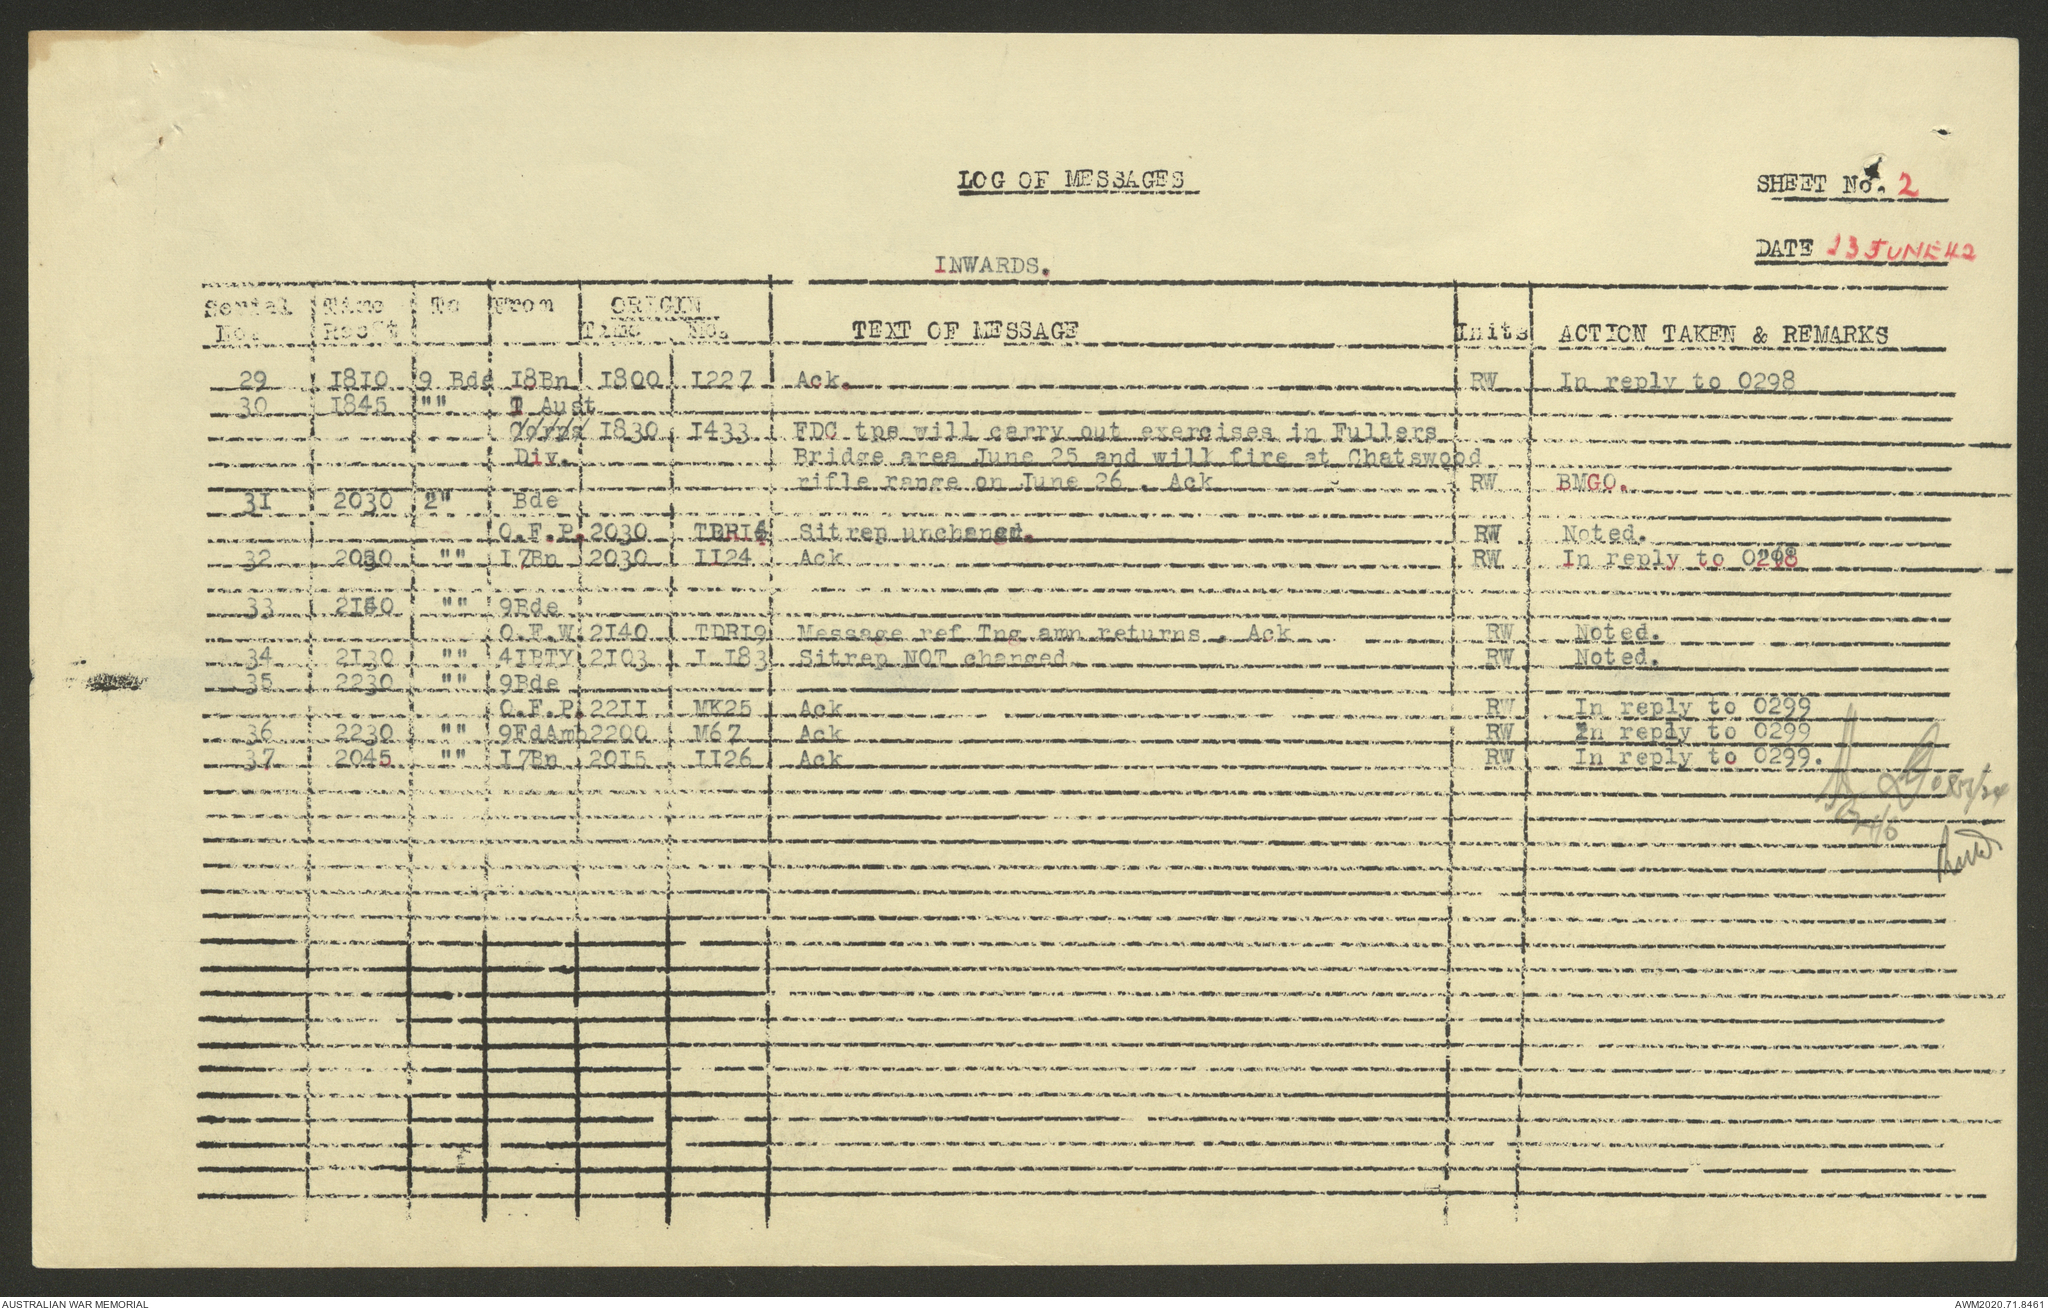 LOG OF MESSAGES
SHEET No. 2
DATE 23 JUNE 42
INWARDS.
Serial Time To From ORIGIN
No. Rec't Time No. TEXT OF MESSAGE Inits ACTION TAKEN & REMARKS
29 1810 9 Bde 18Bn 1800 1227 Ack. RW In reply to 0298
30 1845 "" 1 Aust
Corps 1830 1433 FDC tps will carry out exercises in Fullers
Div. Bridge area June 25 and will fire at Chatswood
rifle range on June 26 . Ack RW BMGO.
31 2030 2" Bde
O.F.P. 2030 Sitrep unchangd. RW Noted.
32 "" 17Bn 2030 1124 Ack RW In reply to 0298
33 "" 9Bde
O.F.W. 2140 TDR19 Message ref Tng amn returns . Ack RW Noted.
34 2130 "" 41BTY 2103 I 183 Sitrep NOT changed RW Noted.
35 2230 "" 9Bde
O.F.P. 2211 MK25 Ack RW In reply to 0299
36 2230 "" 9FdAmb 2200 M67 Ack RW In reply to 0299
37 2045 "" 17Bn 2015 1126 Ack RW In reply to 0299.
AUSTRALIAN WAR MEMORIAL
AWM2020.71.8461